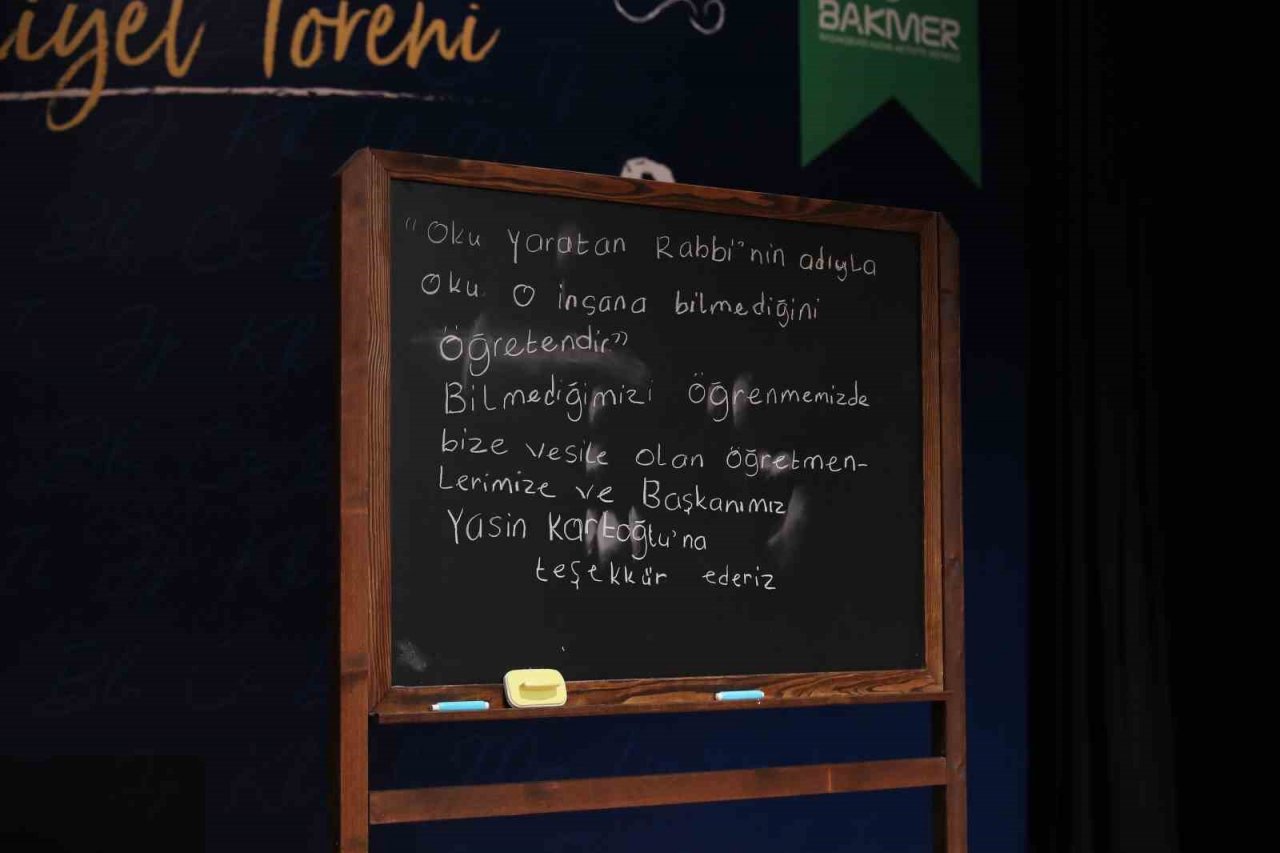 iyet Töreni
BAKMER
"Oku yaratan Rabbi"nin adıyla
oku O insana bilmediğini
Öğretendir"
Bilmediğimizi Öğrenmemizde
bize vesile olan öğretmen-
Lerimize ve Başkanımız
Yasin Kartoğlu'na
teşekkür ederiz